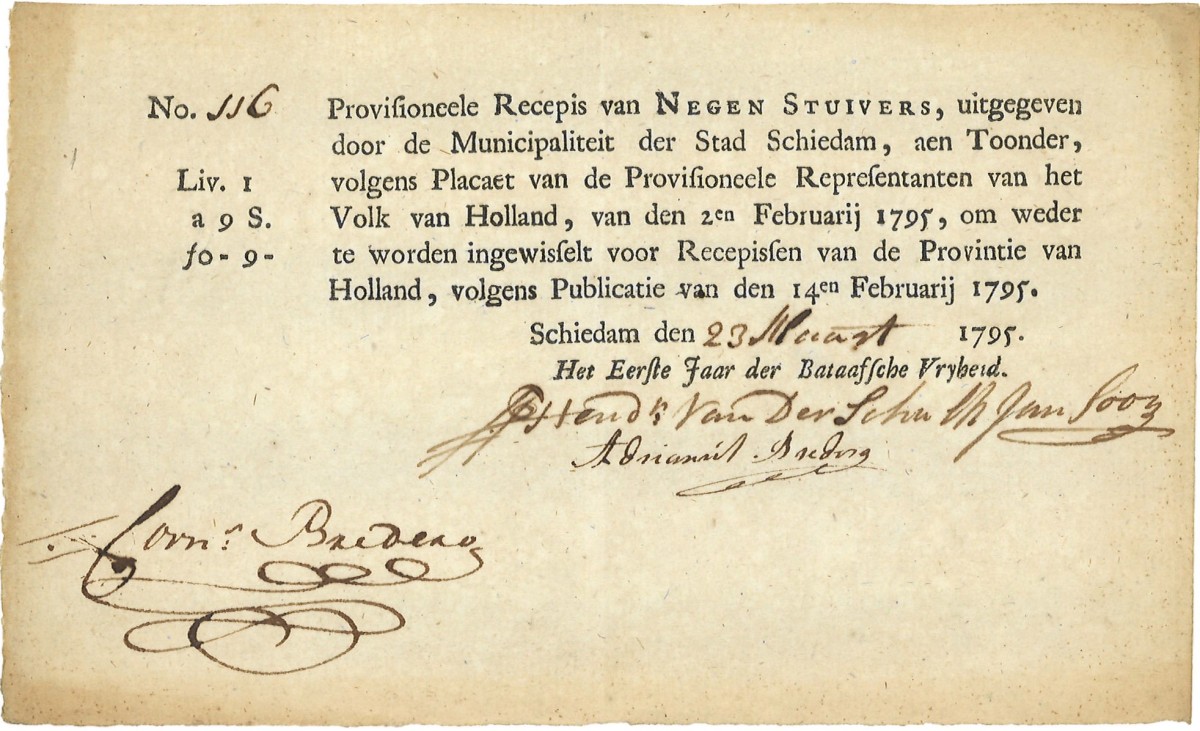 No. 116
Liv. 1
a 9 S.
ƒ0 - 9 -
Proviſioneele Recepis van NEGEN STUIVERS, uitgegeven
door de Municipaliteit der Stad Schiedam, aen Toonder,
volgens Placaet van de Proviſioneele Repreſentanten van het
Volk van Holland, van den 2en Februarij 1795, om weder
te worden ingewiſſelt voor Recepiſſen van de Provintie van
Holland, volgens Publicatie van den 14en Februarij 1795.
Schiedam den 23 Maart 1795.
Het Eerſte Jaar der Bataafſche Vryheid.
Hendk Van Der Schalk Jan Soon
Bredero
Corns Bredero